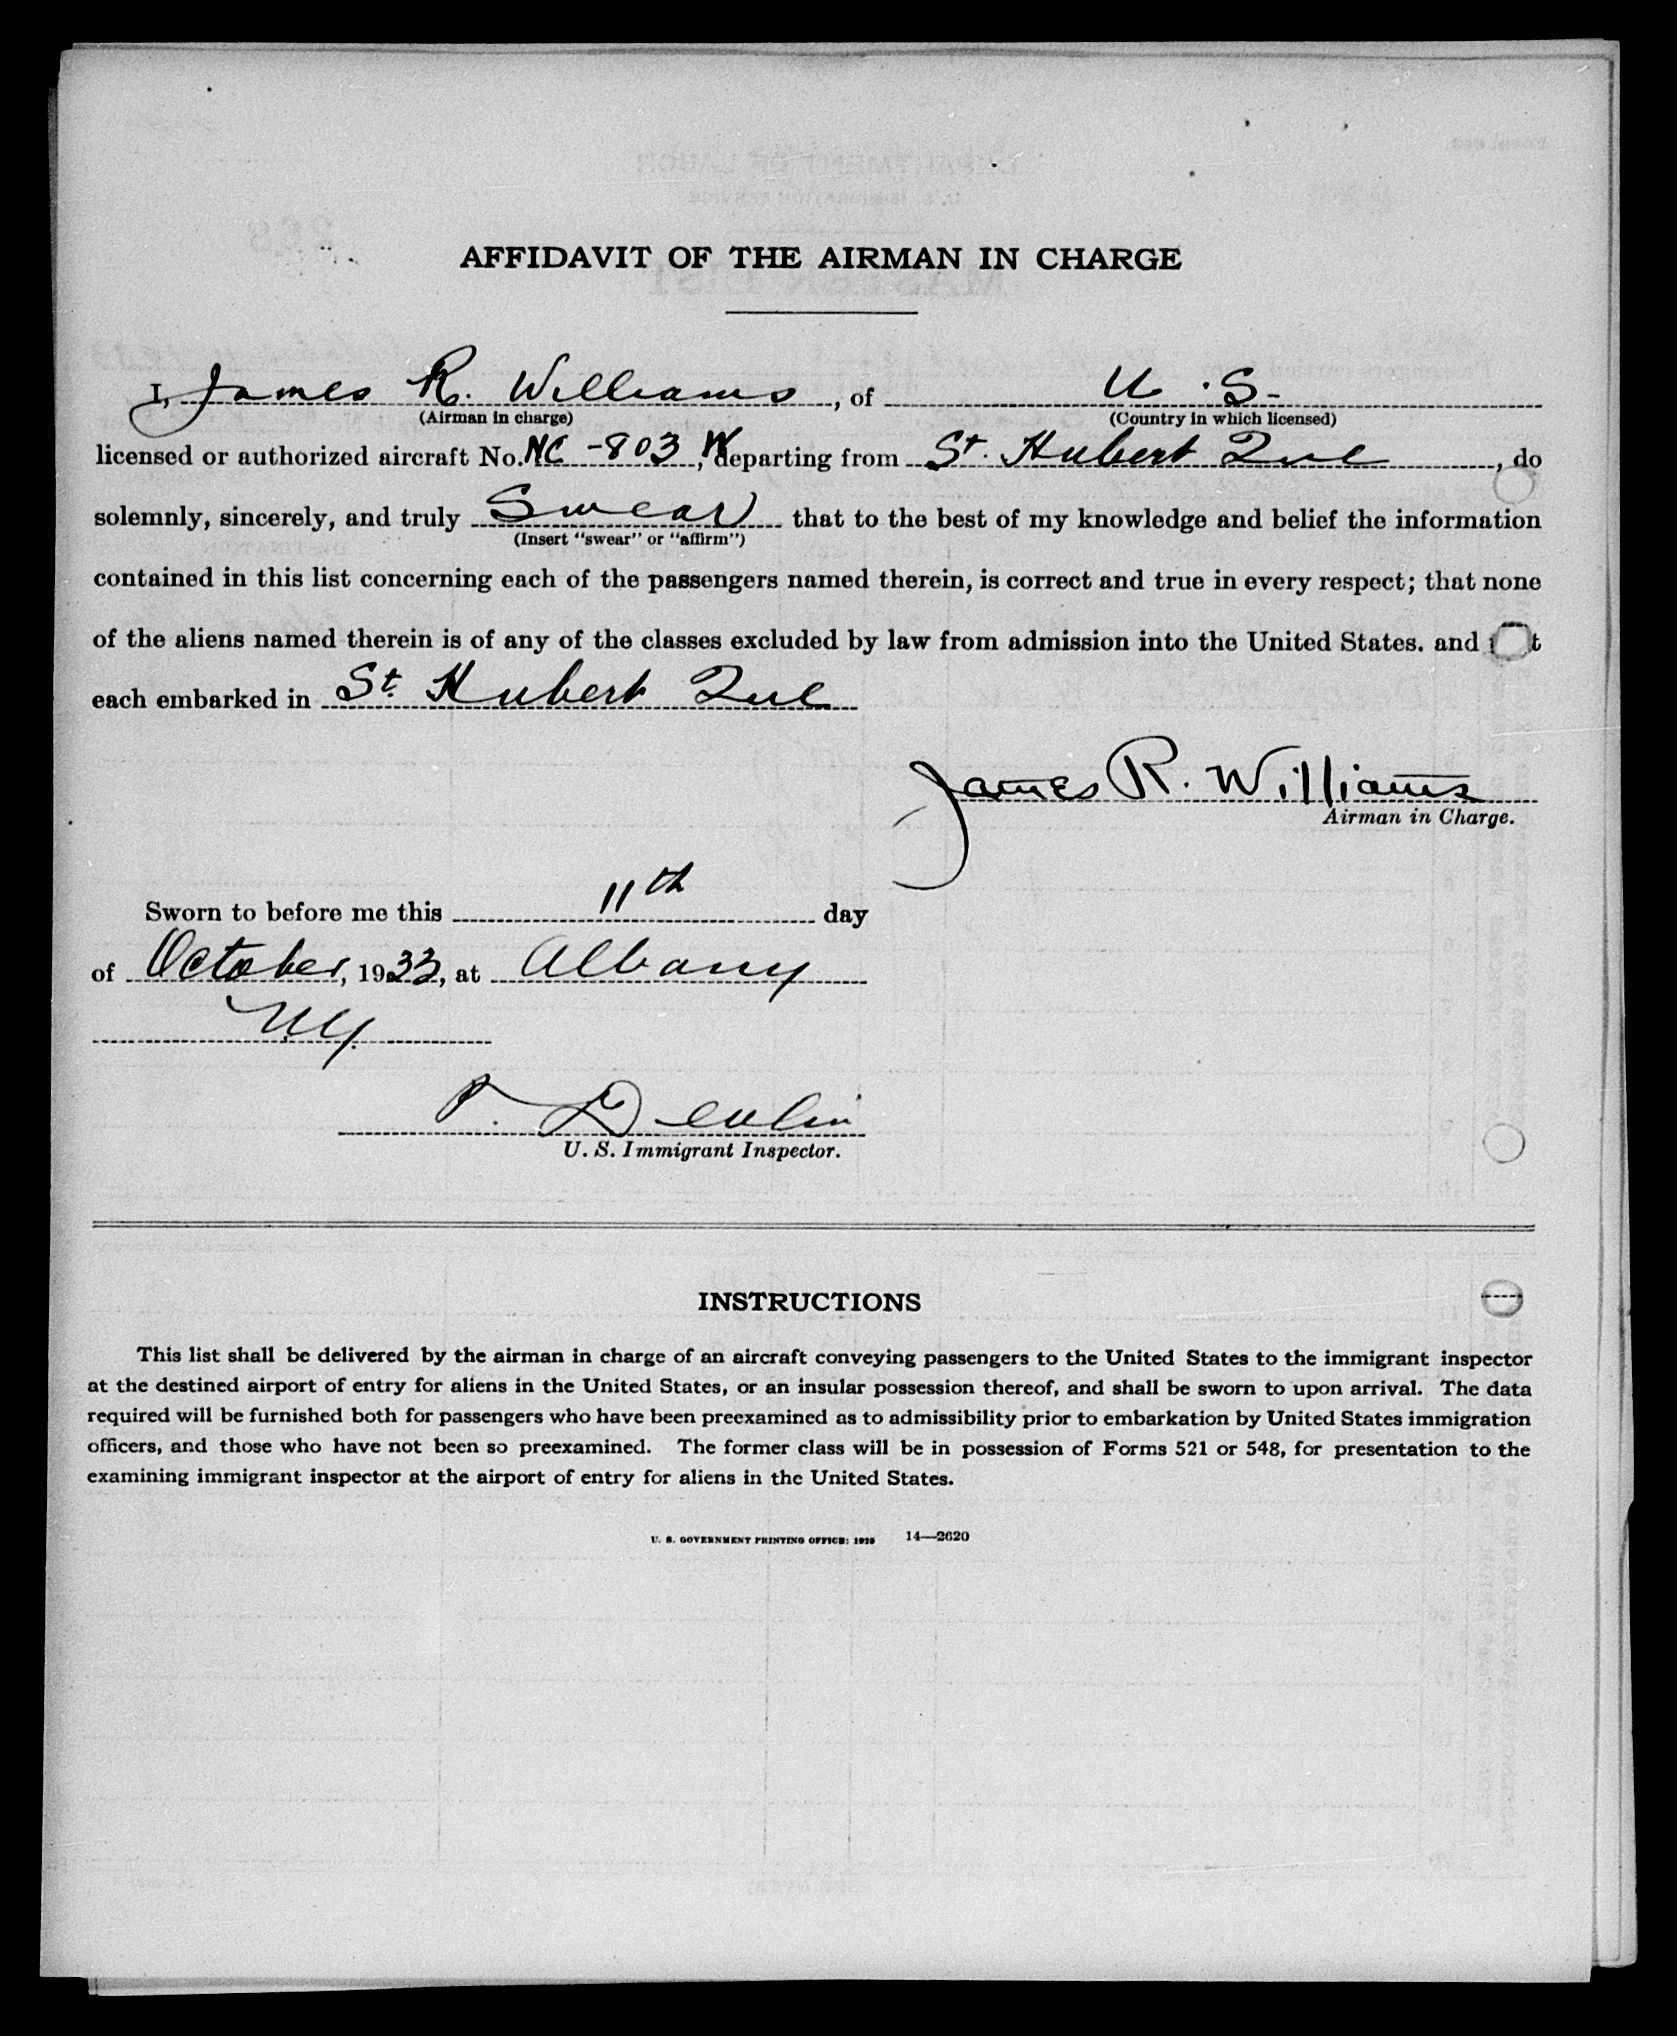 AFFIDAVIT OF THE AIRMAN IN CHARGE
I, James R. Williams, of U.S.
(Airman in charge) (Country in which licensed)
licensed or authorized aircraft No. NC-803 W, departing from St. Hubert Que, do
solemnly, sincerely, and truly Swear that to the best of my knowledge and belief the information
(Insert "swear" or "affirm")
contained in this list concerning each of the passengers named therein, is correct and true in every respect; that none
of the aliens named therein is of any of the classes excluded by law from admission into the United States. and t t
each embarked in St. Hubert Que
James R. Williams
Airman in Charge.
Sworn to before me this 11th day
of October, 1933, at Albany
N.Y.
P. Devlin
U. S. Immigrant Inspector.
INSTRUCTIONS
This list shall be delivered by the airman in charge of an aircraft conveying passengers to the United States to the immigrant inspector
at the destined airport of entry for aliens in the United States, or an insular possession thereof, and shall be sworn to upon arrival. The data
required will be furnished both for passengers who have been preexamined as to admissibility prior to embarkation by United States immigration
officers, and those who have not been so preexamined. The former class will be in possession of Forms 521 or 548, for presentation to the
examining immigrant inspector at the airport of entry for aliens in the United States.
U. S. GOVERNMENT PRINTING OFFICE: 1929 14—2620